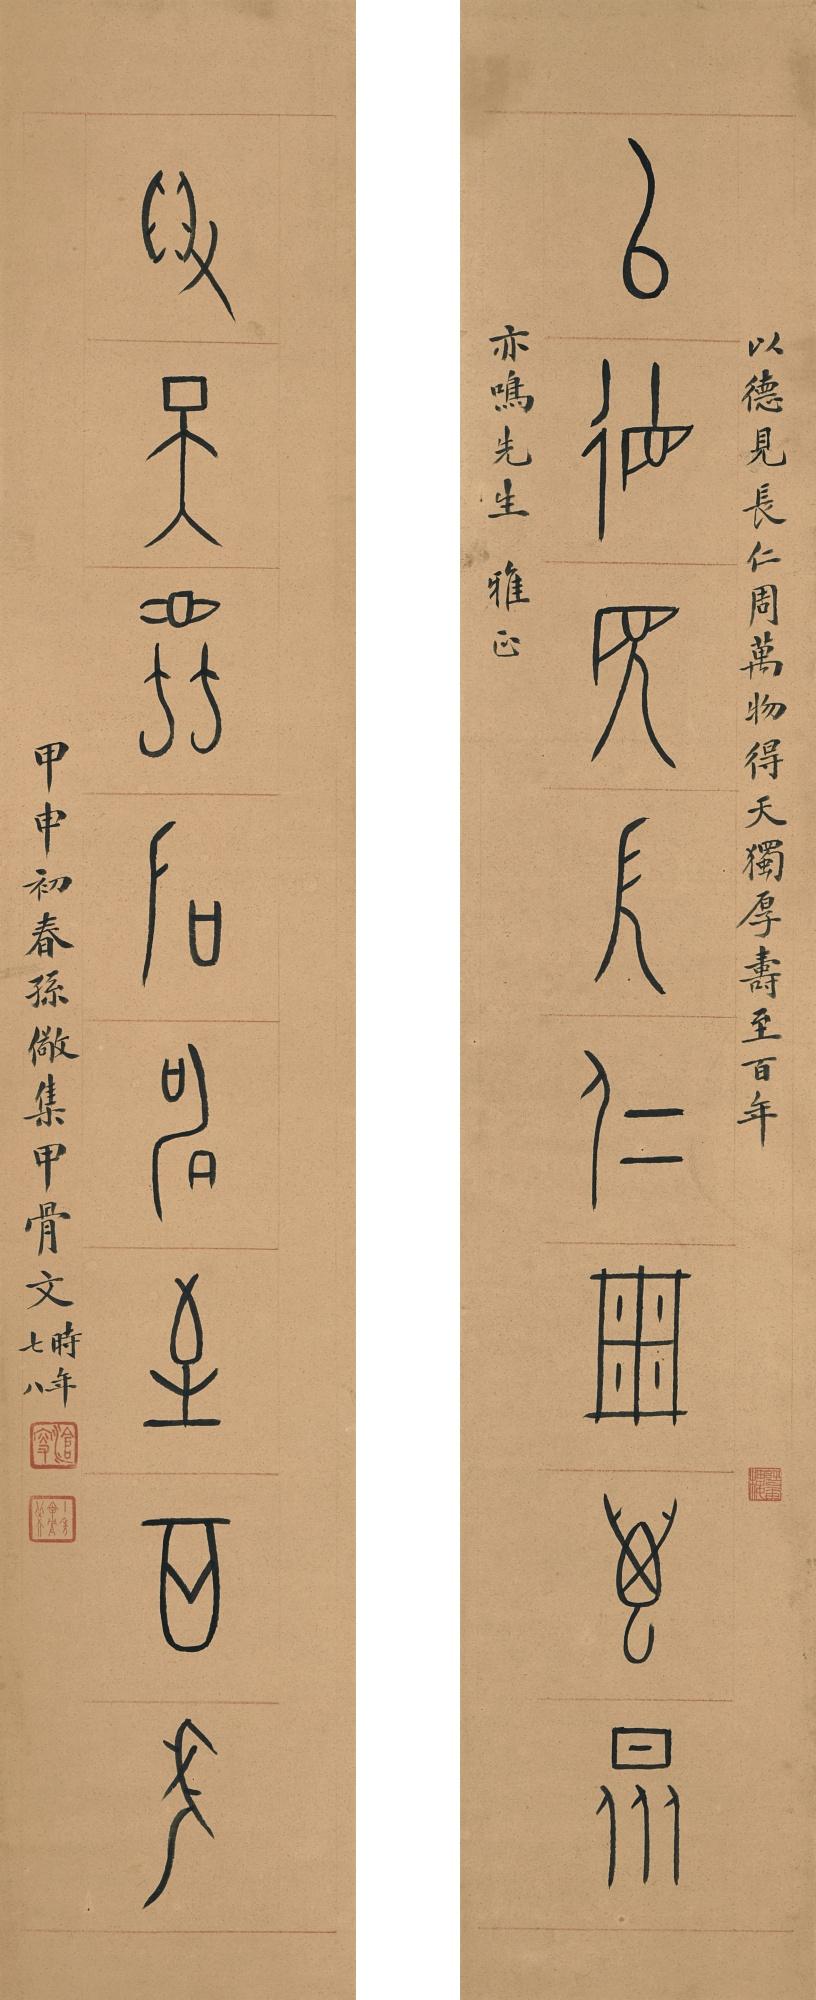 以德見長仁周萬物得天獨厚壽至百年
以德見長仁周萬眾
亦鳴先生 雅正
得天獨厚壽至百年
甲申初春孫儆集甲骨文時年七八
滄叟